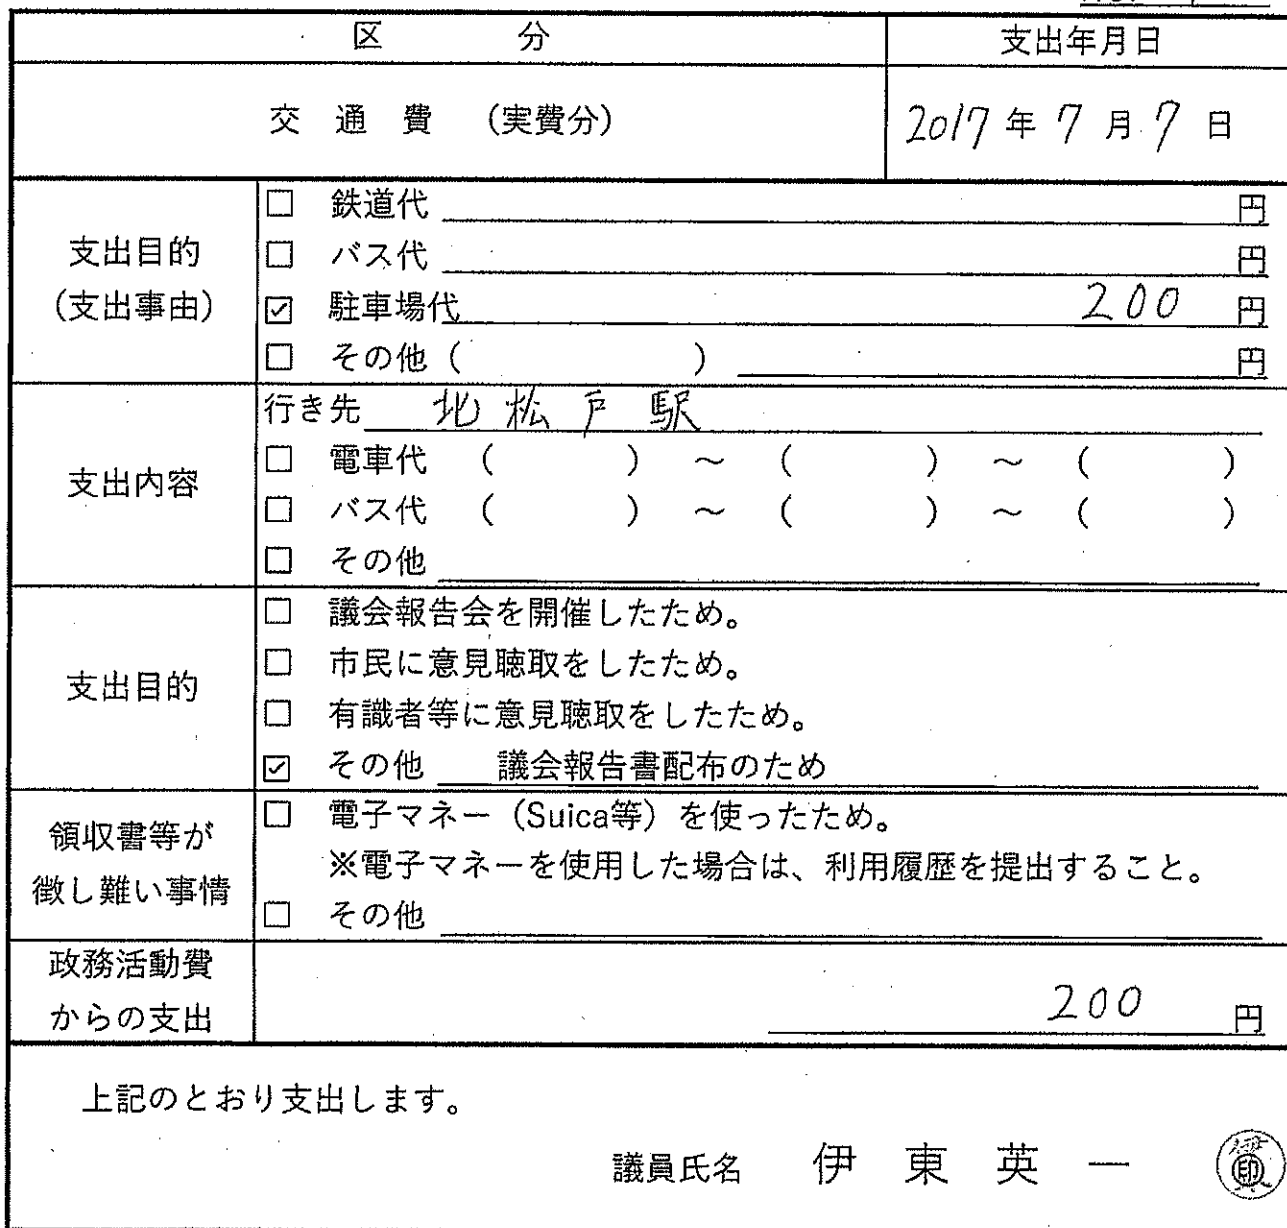 区 分 支出年月日
交 通 費 (実費分) 2017 年 7 月 7 日
支出目的
(支出事由)
□ 鉄道代 円
□ バス代 円
☑ 駐車場代 200 円
□ その他 ( ) 円
支出内容
行き先 北松戸駅
□ 電車代 ( ) ～ ( ) ～ ( )
□ バス代 ( ) ～ ( ) ～ ( )
□ その他
支出目的
□ 議会報告会を開催したため。
□ 市民に意見聴取をしたため。
□ 有識者等に意見聴取をしたため。
☑ その他 議会報告書配布のため
領収書等が
徴し難い事情
□ 電子マネー（Suica等）を使ったため。
※電子マネーを使用した場合は、利用履歴を提出すること。
□ その他
政務活動費
からの支出
200 円
上記のとおり支出します。
議員氏名 伊 東 英 一 印